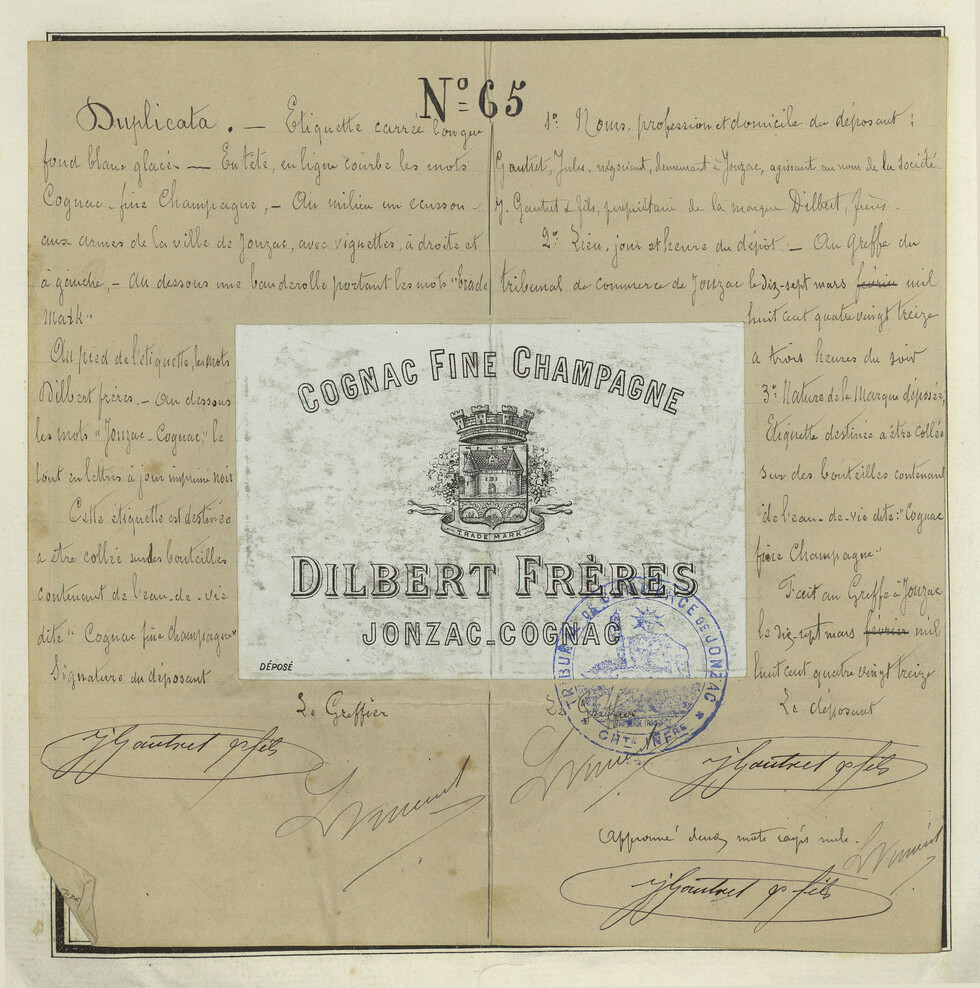 Nº 65
Duplicata. — Etiquette carrée longue
fond blanc glacé — En tête, en ligne courbe les mots
Cognac fine Champagne, — Au milieu un écusson
aux armes de la ville de Jonzac, avec vignettes, à droite et
à gauche, — au dessous une banderolle portant les mots "Trade
Mark"
Au pied de l'étiquette, les mots
Dilbert frères. — Au dessous
les mots "Jonzac-Cognac," le
tout en lettres à jour imprimé noir
Cette étiquette est destinée
a être collée sur des bouteilles
contenant de l'eau-de-vie
dite "Cognac fine champagne"
Signature du déposant
Le Greffier
J Gautret & fils
1º: Noms, profession et domicile du déposant :
Gautret, Jules, négociant, demeurant à Jonzac, agissant au nom de la société
J. Gautret & fils, propriétaire de la marque Dilbert, frères.
2º: Lieu, jour et heure du dépôt — Au Greffe du
tribunal de commerce de Jonzac le dix-sept mars février mil
huit cent quatre vingt treize
a trois heures du soir
3º: Nature de la Marque déposée,
Etiquette destinée a être collée
sur des bouteilles contenant
de l'eau-de-vie dite: "Cognac
fine Champagne"
Fait au Greffe à Jonzac
le dix-sept mars février mil
huit cent quatre vingt treize
Le Greffier
Le déposant
J Gautret & fils
Approuvé deux mots rayés nuls.
J Gautret & fils
COGNAC FINE CHAMPAGNE
TRADE MARK
DILBERT FRÈRES
JONZAC-COGNAC
DÉPOSÉ
TRIBUNAL DE COMMERCE DE JONZAC
* CHTE INFRE *